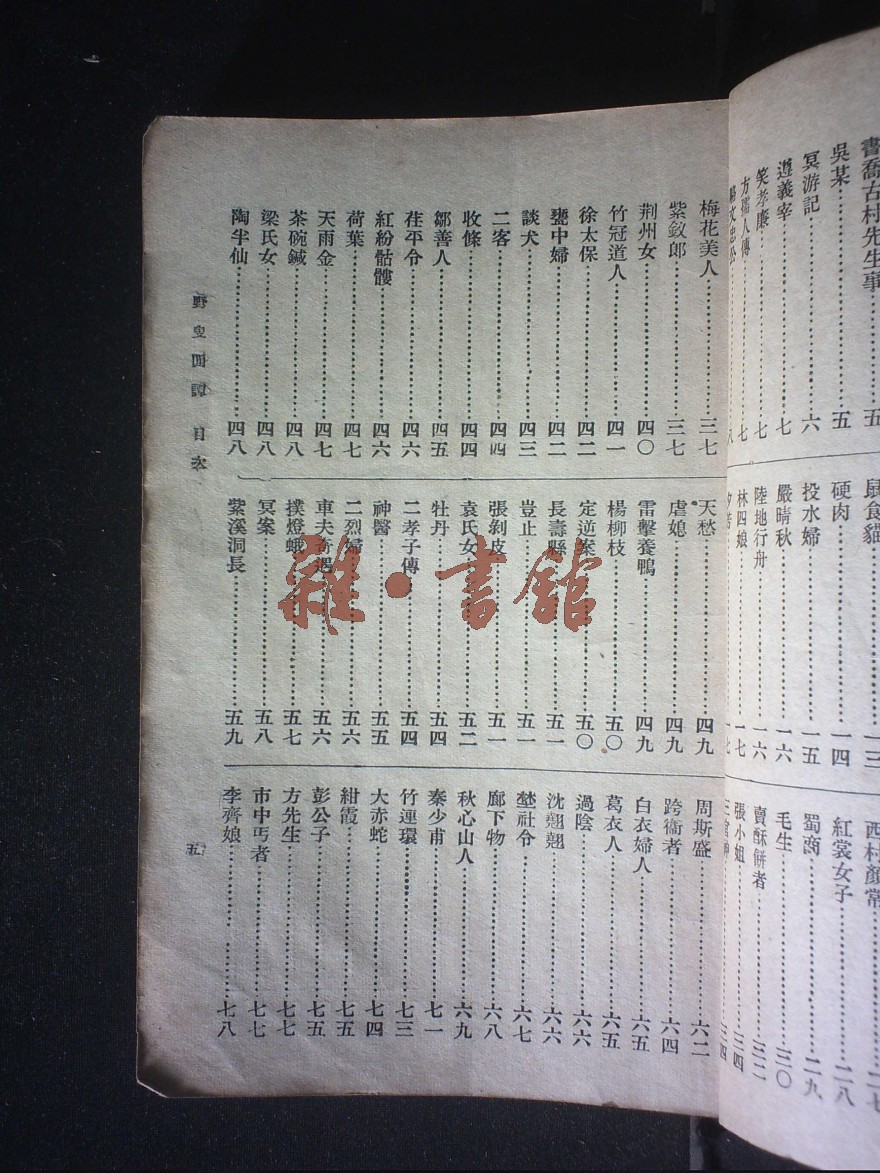 吳某……五
冥游記……六
遵義宰……七
笑孝廉……七
方孺人傳……七
硬肉……一四
投水婦……一五
嚴晴秋……一六
陸地行舟……一六
林四娘……一七
紅裳女子……二八
蜀商……二九
毛生……三〇
賣酥餅者……三二
張小姐……三四
梅花美人……三七
紫釵郎……三七
荆州女……四〇
竹冠道人……四一
徐太保……四二
甕中婦……四二
談犬……四三
二客……四四
收條……四四
鄒善人……四五
茌平令……四六
紅粉骷髏……四六
荷葉……四七
天雨金……四七
茶碗鍼……四八
梁氏女……四八
陶半仙……四八
天愁……四九
虐媳……四九
雷擊養鴨……四九
楊柳枝……五〇
定逆案……五〇
長壽縣……五一
豈止……五一
張剝皮……五一
袁氏女……五二
牡丹……五四
二孝子傳……五四
神醫……五五
二烈婦……五六
車夫奇遇……五六
撲燈蛾……五七
冥案……五八
紫溪洞長……五九
周斯盛……六二
跨衞者……六四
白衣婦人……六五
葛衣人……六五
過陰……六六
沈翹翹……六六
埜社令……六七
廊下物……六八
秋心山人……六九
秦少甫……七一
竹連環……七三
大赤蛇……七四
紺霞……七五
彭公子……七五
方先生……七七
市中丐者……七七
李齊娘……七八
野叟閒譚 目次
五
雜·書館